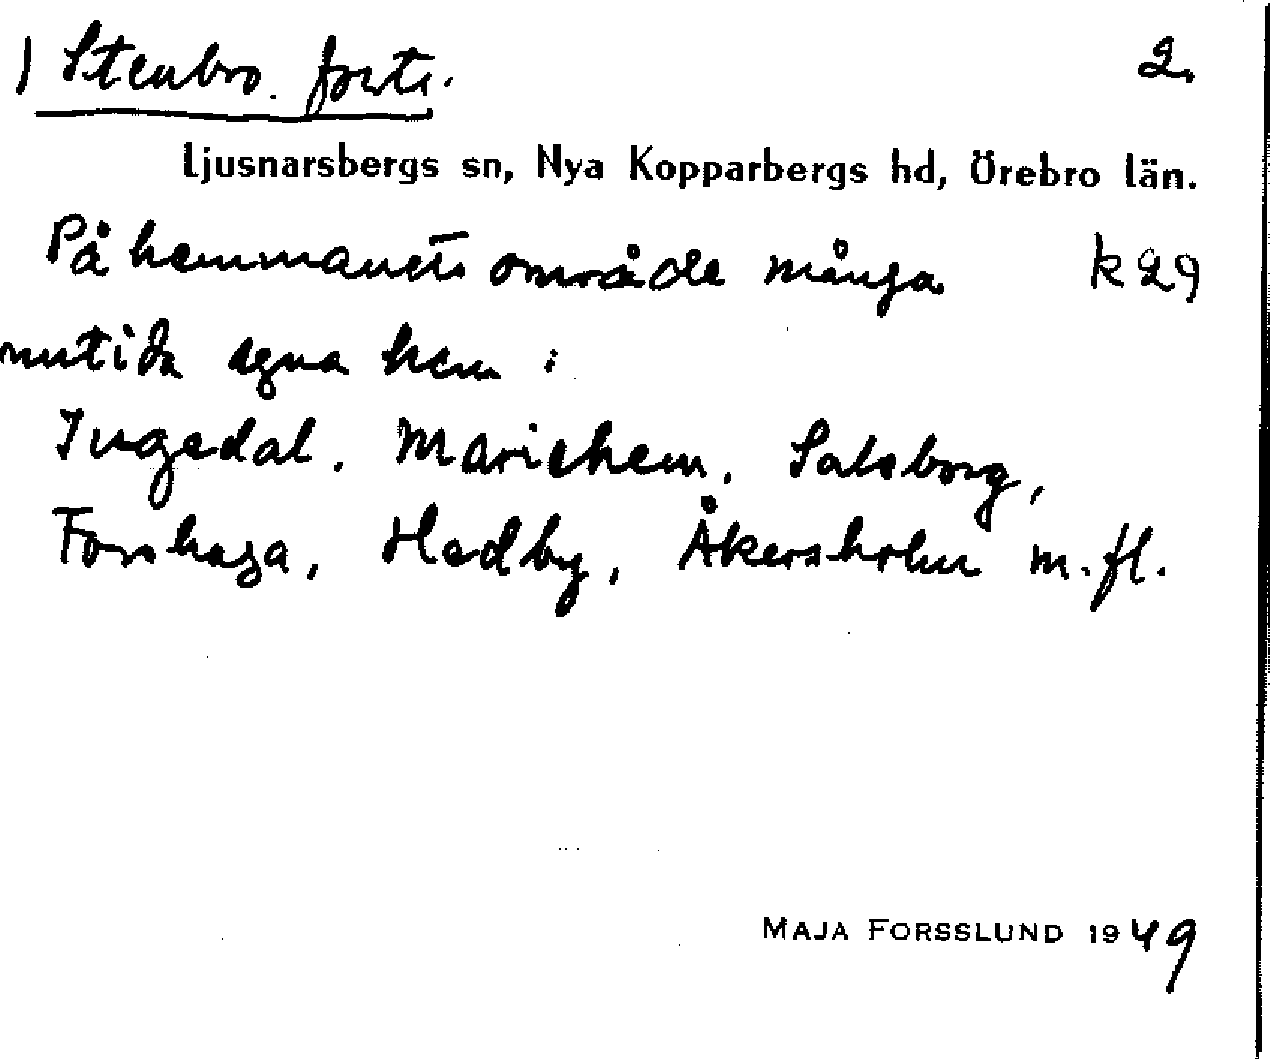 ) Stenbro. forts. 2.
Ljusnarsbergs sn, Nya Kopparbergs hd, Örebro län.
På hemmanets område många k 29
nutida egna hem:
Ingedal, Mariehem, Salsborg,
Forshaga, Hedby, Åkersholm m.fl.
MAJA FORSSLUND 1949